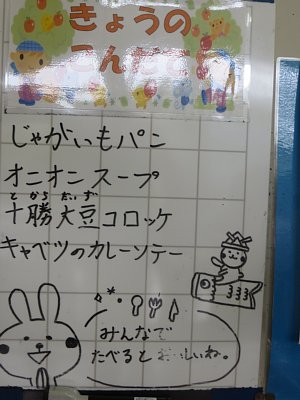 きょうの
こんだて
じゃがいもパン
オニオンスープ
とかちだいず
十勝大豆コロッケ
キャベツのカレーソテー
みんなで
たべるとおいしいね。